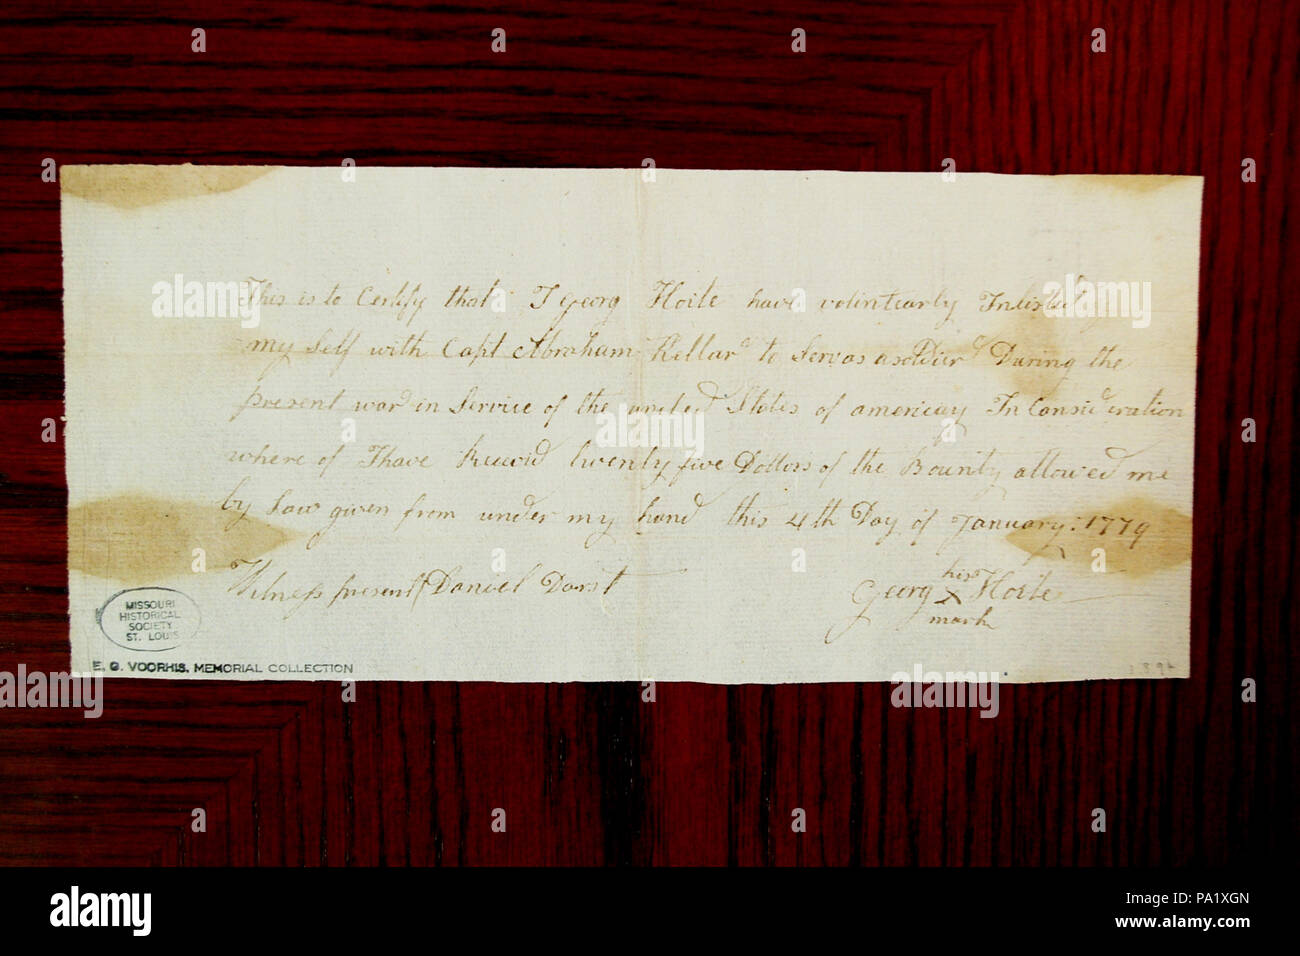 This is to Certify that I Georg Hoite have volintearly Inlisted
my self with Capt Abraham Kellar to Serv as a soldier During the
present war in Service of the united States of american In Consideration
where of I have Receivd twenty five Dollors of the Bounty allowed me
by Law given from under my hand this 4th Day of January: 1779
Witness present Daniel Dorst
his
Georg X Hoite
mark
MISSOURI
HISTORICAL
SOCIETY
ST. LOUIS
E. G. VOORHIS. MEMORIAL COLLECTION
alamy
alamy
Image ID: PA1XGN
www.alamy.com